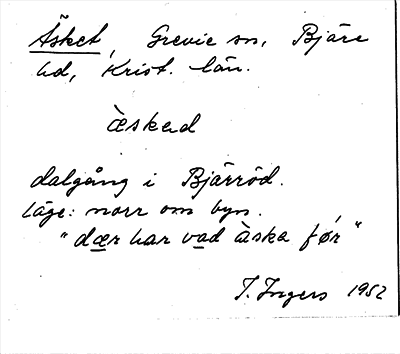 Äsket, Grevie sn, Bjäre
hd, Krist. län.
æ̀skəd
dalgång i Bjärröd.
Läge: norr om byn.
"dær har vad æ̀ska før"
I. Ingers 1952